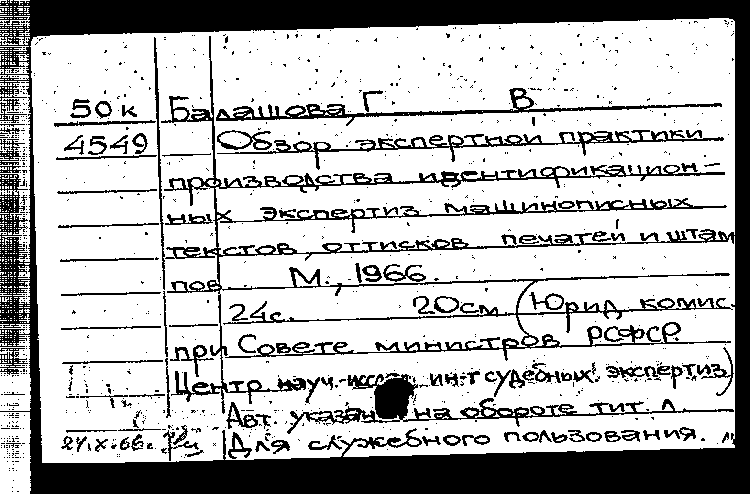 50к Балашова, Г В
4549 Обзор экспертной практики
производства идентификацион-
ных экспертиз машинописных
текстов, оттисков печатей и штам
пов М., 1966.
24с. 20см (Юрид. комис.
при Совете министров РСФСР.
Центр. науч.-исслед. ин-т судебных экспертиз)
Авт. указан на обороте тит. л.
24.X.66. Для служебного пользования.